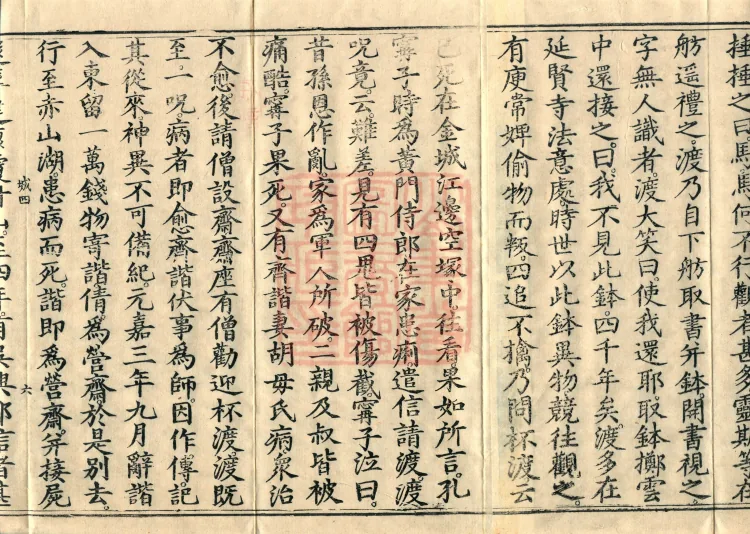 捶捶之曰馬馬何不行觀者甚多靈期等在
舫遥禮之。渡乃自下舫取書并鉢。開書視之。
字無人識者。渡大笑曰。使我還耶。取鉢擲雲
中還接之。曰。我不見此鉢。四千年矣。渡多在
延賢寺法意處。時世以此鉢異物競往觀之。
有庾常婢偷物而叛。四追不擒。乃問杯渡云
已死在金城江邊空塚中。往看果如所言。孔
寗子時為黃門侍郎。在家患痢。遣信請渡。渡
呪竟。云。難差。見有四鬼皆被傷截。寗子泣曰。
昔孫恩作亂。家為軍人所破。二親及叔皆被
痛酷。寗子果死。又有齊諧妻胡毋氏病。衆治
不愈。後請僧設齋。齋座有僧勸迎杯渡。渡既
至。一呪。病者即愈。齊諧伏事為師。因作傳記
其從來神異不可備紀。元嘉三年九月辭諧
入東。留一萬錢物寄諧。倩為營齋。於是別去。
行至赤山湖。患病而死。諧即為營齋。并接屍
城四 六
至四年。有吳興邵信者甚